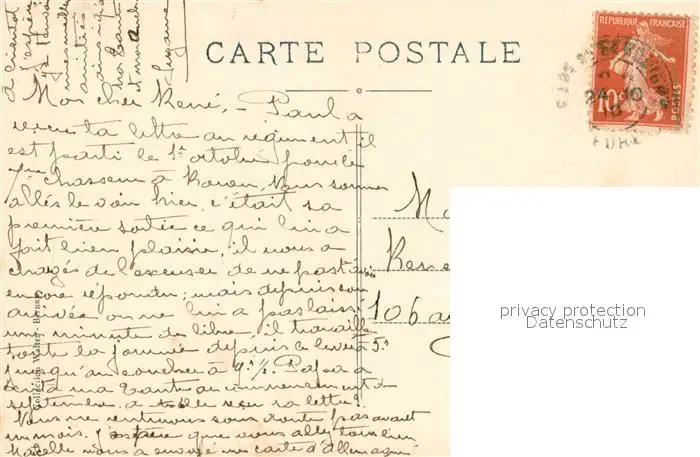 à bientôt
j'espère
CARTE POSTALE
REPUBLIQUE FRANÇAISE
10
POSTES
24-10
Mon cher René, - Paul a
reçu ta lettre au régiment il
est parti le 1er octobre pour le
7me chasseur à Rouen, Nous sommes
allés le voir hier, c'était sa
première sortie ce qui lui a
fait bien plaisir, il nous a
chargés de t'excuser de ne pas t'avoir
encore répondu; mais depuis son
arrivée on ne lui a pas laissé
une minute de libre, il travaille
toute la journée depuis le lever à 5h
jusqu'au coucher à 9h ½. Papa a
écrit à ma tante au commencement de
septembre, a reçu sa lettre?
Nous ne rentrerons sans doute pas avant
un mois. J'espère que vous allez tous bien
Marcelle nous a envoyé une carte d'Allemagne
et mon oncle
Suzanne
Collection Walter - Bernay
M
René
106 a
privacy protection
Datenschutz